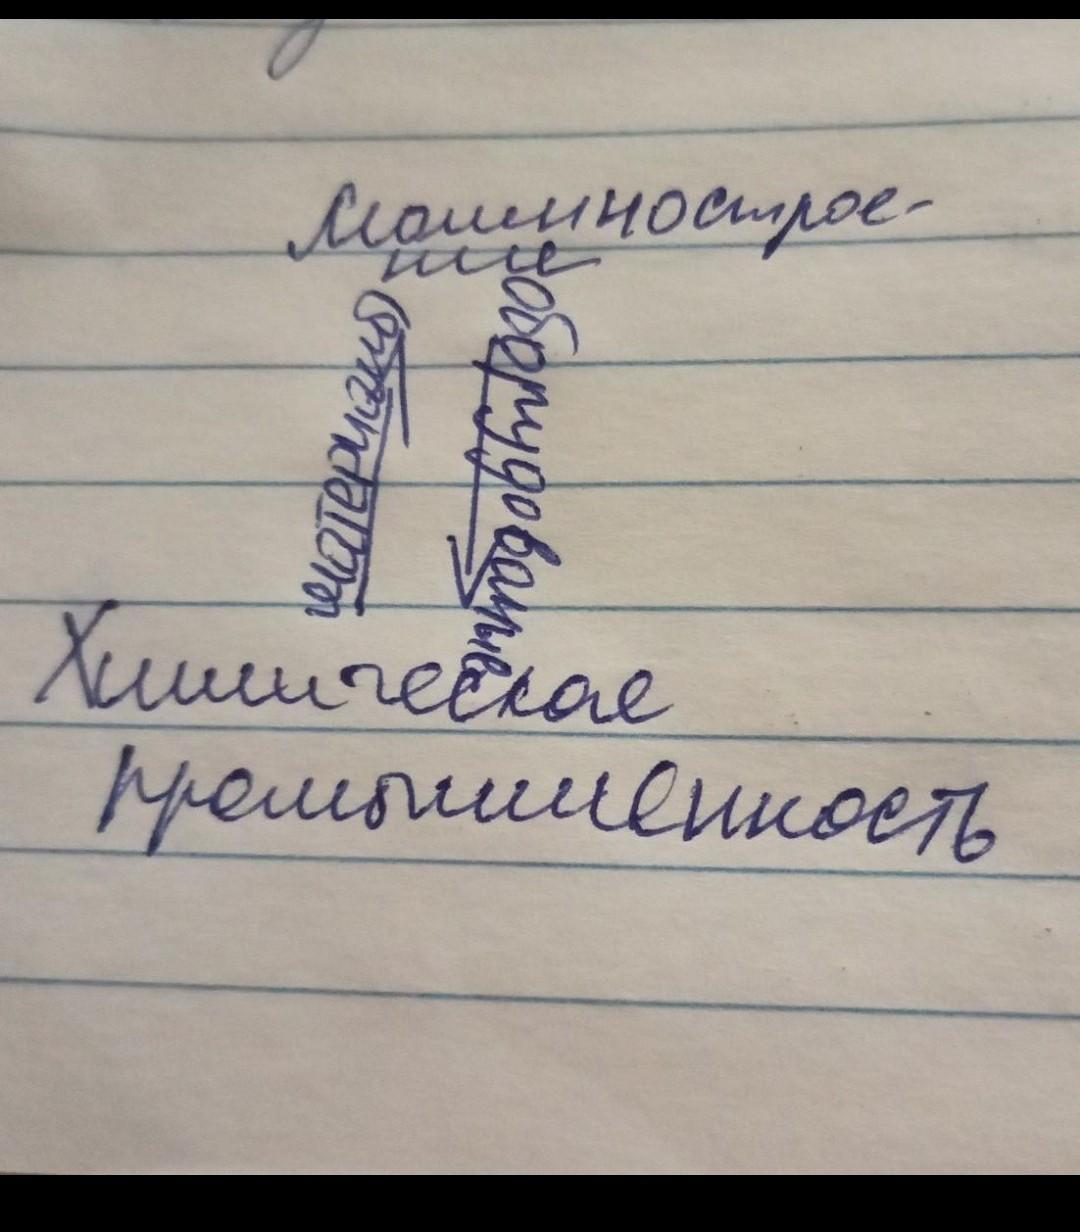 Машинострое-
ние
материалы
оборудование
Химическая
промышленность